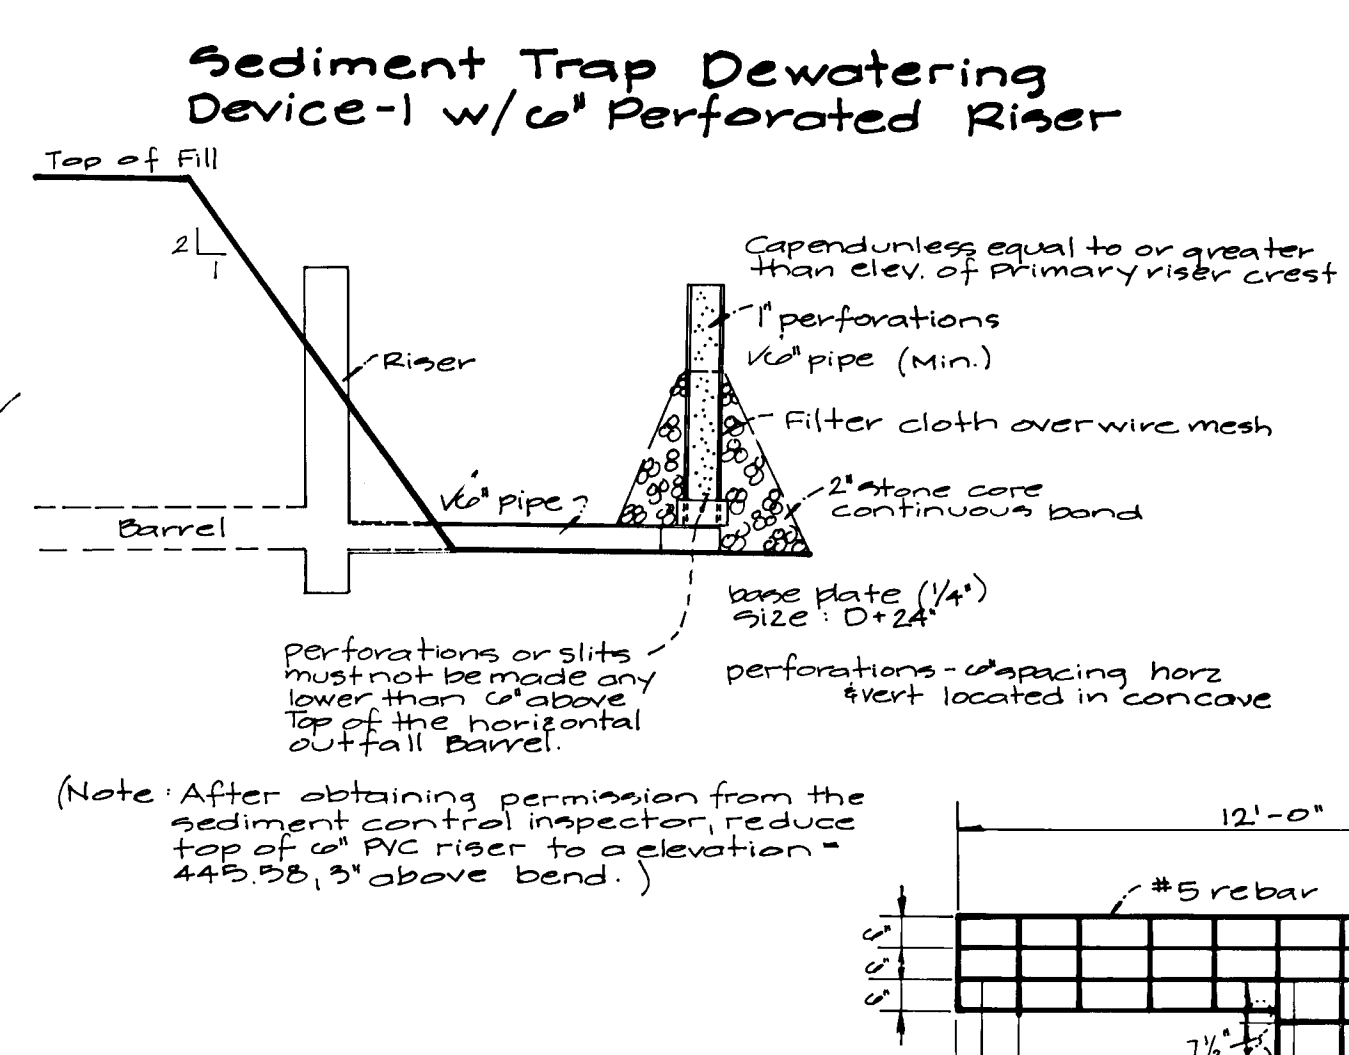 Sediment Trap Dewatering
Device-1 w/6" Perforated Riser
Top of Fill
2
1
Cap end unless equal to or greater
than elev. of primary riser crest
1" perforations
6" pipe (Min.)
Riser
Filter cloth over wire mesh
2" stone core
continuous band
6" pipe
Barrel
base plate (1/4")
size : D+24"
perforations or slits
must not be made any
lower than 6" above
Top of the horizontal
outfall Barrel.
perforations - 6" spacing horz
&vert located in concave
(Note : After obtaining permission from the
sediment control inspector, reduce
top of 6" PVC riser to a elevation =
445.58, 3" above bend. )
12'-0"
#5 rebar
6"
6"
6"
7½"